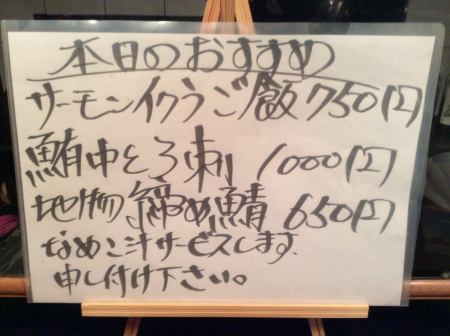 本日のおすすめ
サーモンイクラご飯750円
鮪中とろ刺 1000円
地物 〆め鯖 650円
なめこ汁サービスします。
申し付け下さい。